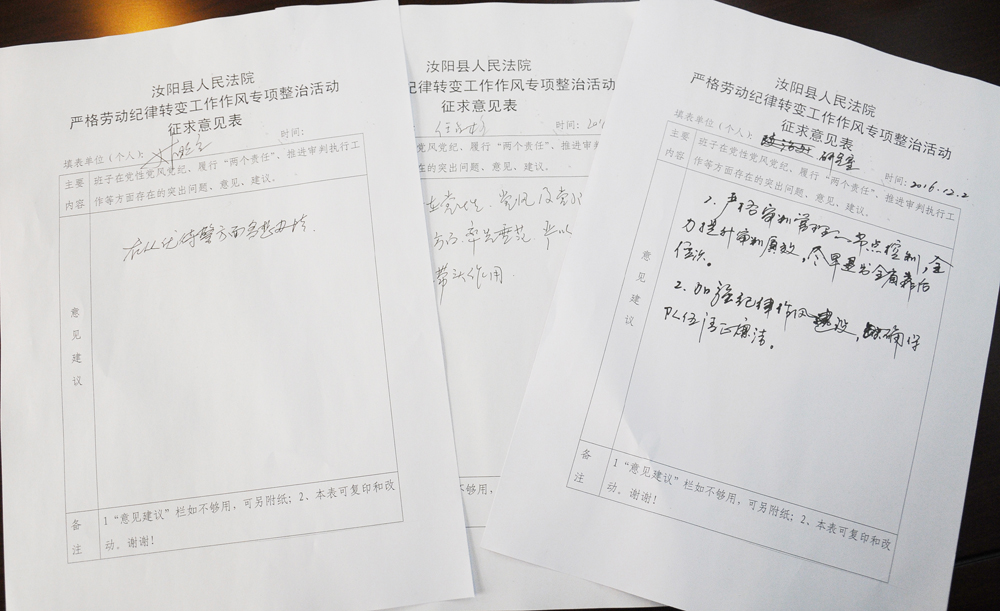 汝阳县人民法院
严格劳动纪律转变工作作风专项整治活动
征求意见表
填表单位(个人):
时间:
主要内容
班子在党性党风党纪、履行“两个责任”、推进审判执行工
作等方面存在的突出问题、意见、建议。
意见建议
在从优待警方面多想办法.
备注
1“意见建议”栏如不够用,可另附纸;2、本表可复印和改
动。谢谢!
汝阳县人民法院
纪律转变工作作风专项整治活动
征求意见表
时间:201
党风党纪、履行“两个责任”、推进审判执行工
在的突出问题、意见、建议。
在党性、党风及党纪
方面率先垂范,严以
带头作用.
”栏如不够用,可另附纸
汝阳县人民法院
严格劳动纪律转变工作作风专项整治活动
征求意见表
填表单位(个人): 研究室
时间:2016.12.2
主要内容
班子在党性党风党纪、履行“两个责任”、推进审判执行工
作等方面存在的突出问题、意见、建议。
意见建议
1、严格审判管理 节点控制,全
力提升审判质效,尽早退出全省靠后
位次。
2、加强纪律作风建设,确保
队伍清正廉洁。
备注
1“意见建议”栏如不够用,可另附纸;2、本表可复印和改
动。谢谢!